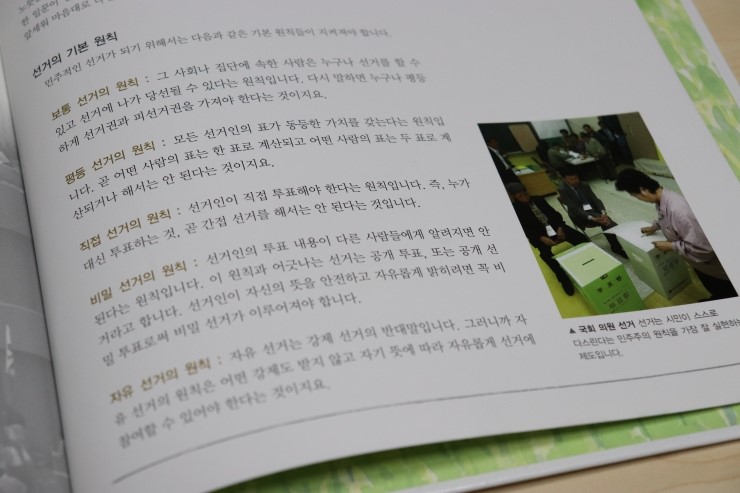 노
한 집단이
앞세워 마음대로 다
선거의 기본 원칙
민주적인 선거가 되기 위해서는 다음과 같은 기본 원칙들이 지켜져야 합니다.
보통 선거의 원칙 : 그 사회나 집단에 속한 사람은 누구나 선거를 할 수
있고 선거에 나가 당선될 수 있다는 원칙입니다. 다시 말하면 누구나 평등
하게 선거권과 피선거권을 가져야 한다는 것이지요.
평등 선거의 원칙 : 모든 선거인의 표가 동등한 가치를 갖는다는 원칙입
니다. 곧 어떤 사람의 표는 한 표로 계산되고 어떤 사람의 표는 두 표로 계
산되거나 해서는 안 된다는 것이지요.
직접 선거의 원칙 : 선거인이 직접 투표해야 한다는 원칙입니다. 즉, 누가
대신 투표하는 것, 곧 간접 선거를 해서는 안 된다는 것입니다.
비밀 선거의 원칙 : 선거인의 투표 내용이 다른 사람들에게 알려지면 안
된다는 원칙입니다. 이 원칙과 어긋나는 선거는 공개 투표, 또는 공개 선
거라고 합니다. 선거인이 자신의 뜻을 안전하고 자유롭게 밝히려면 꼭 비
밀 투표로써 비밀 선거가 이루어져야 합니다.
자유 선거의 원칙 : 자유 선거는 강제 선거의 반대말입니다. 그러니까 자
유 선거의 원칙은 어떤 강제도 받지 않고 자기 뜻에 따라 자유롭게 선거에
참여할 수 있어야 한다는 것이지요.
투표함
▲ 국회 의원 선거 선거는 시민이 스스로
다스린다는 민주주의 원칙을 가장 잘 실현하는
제도입니다.